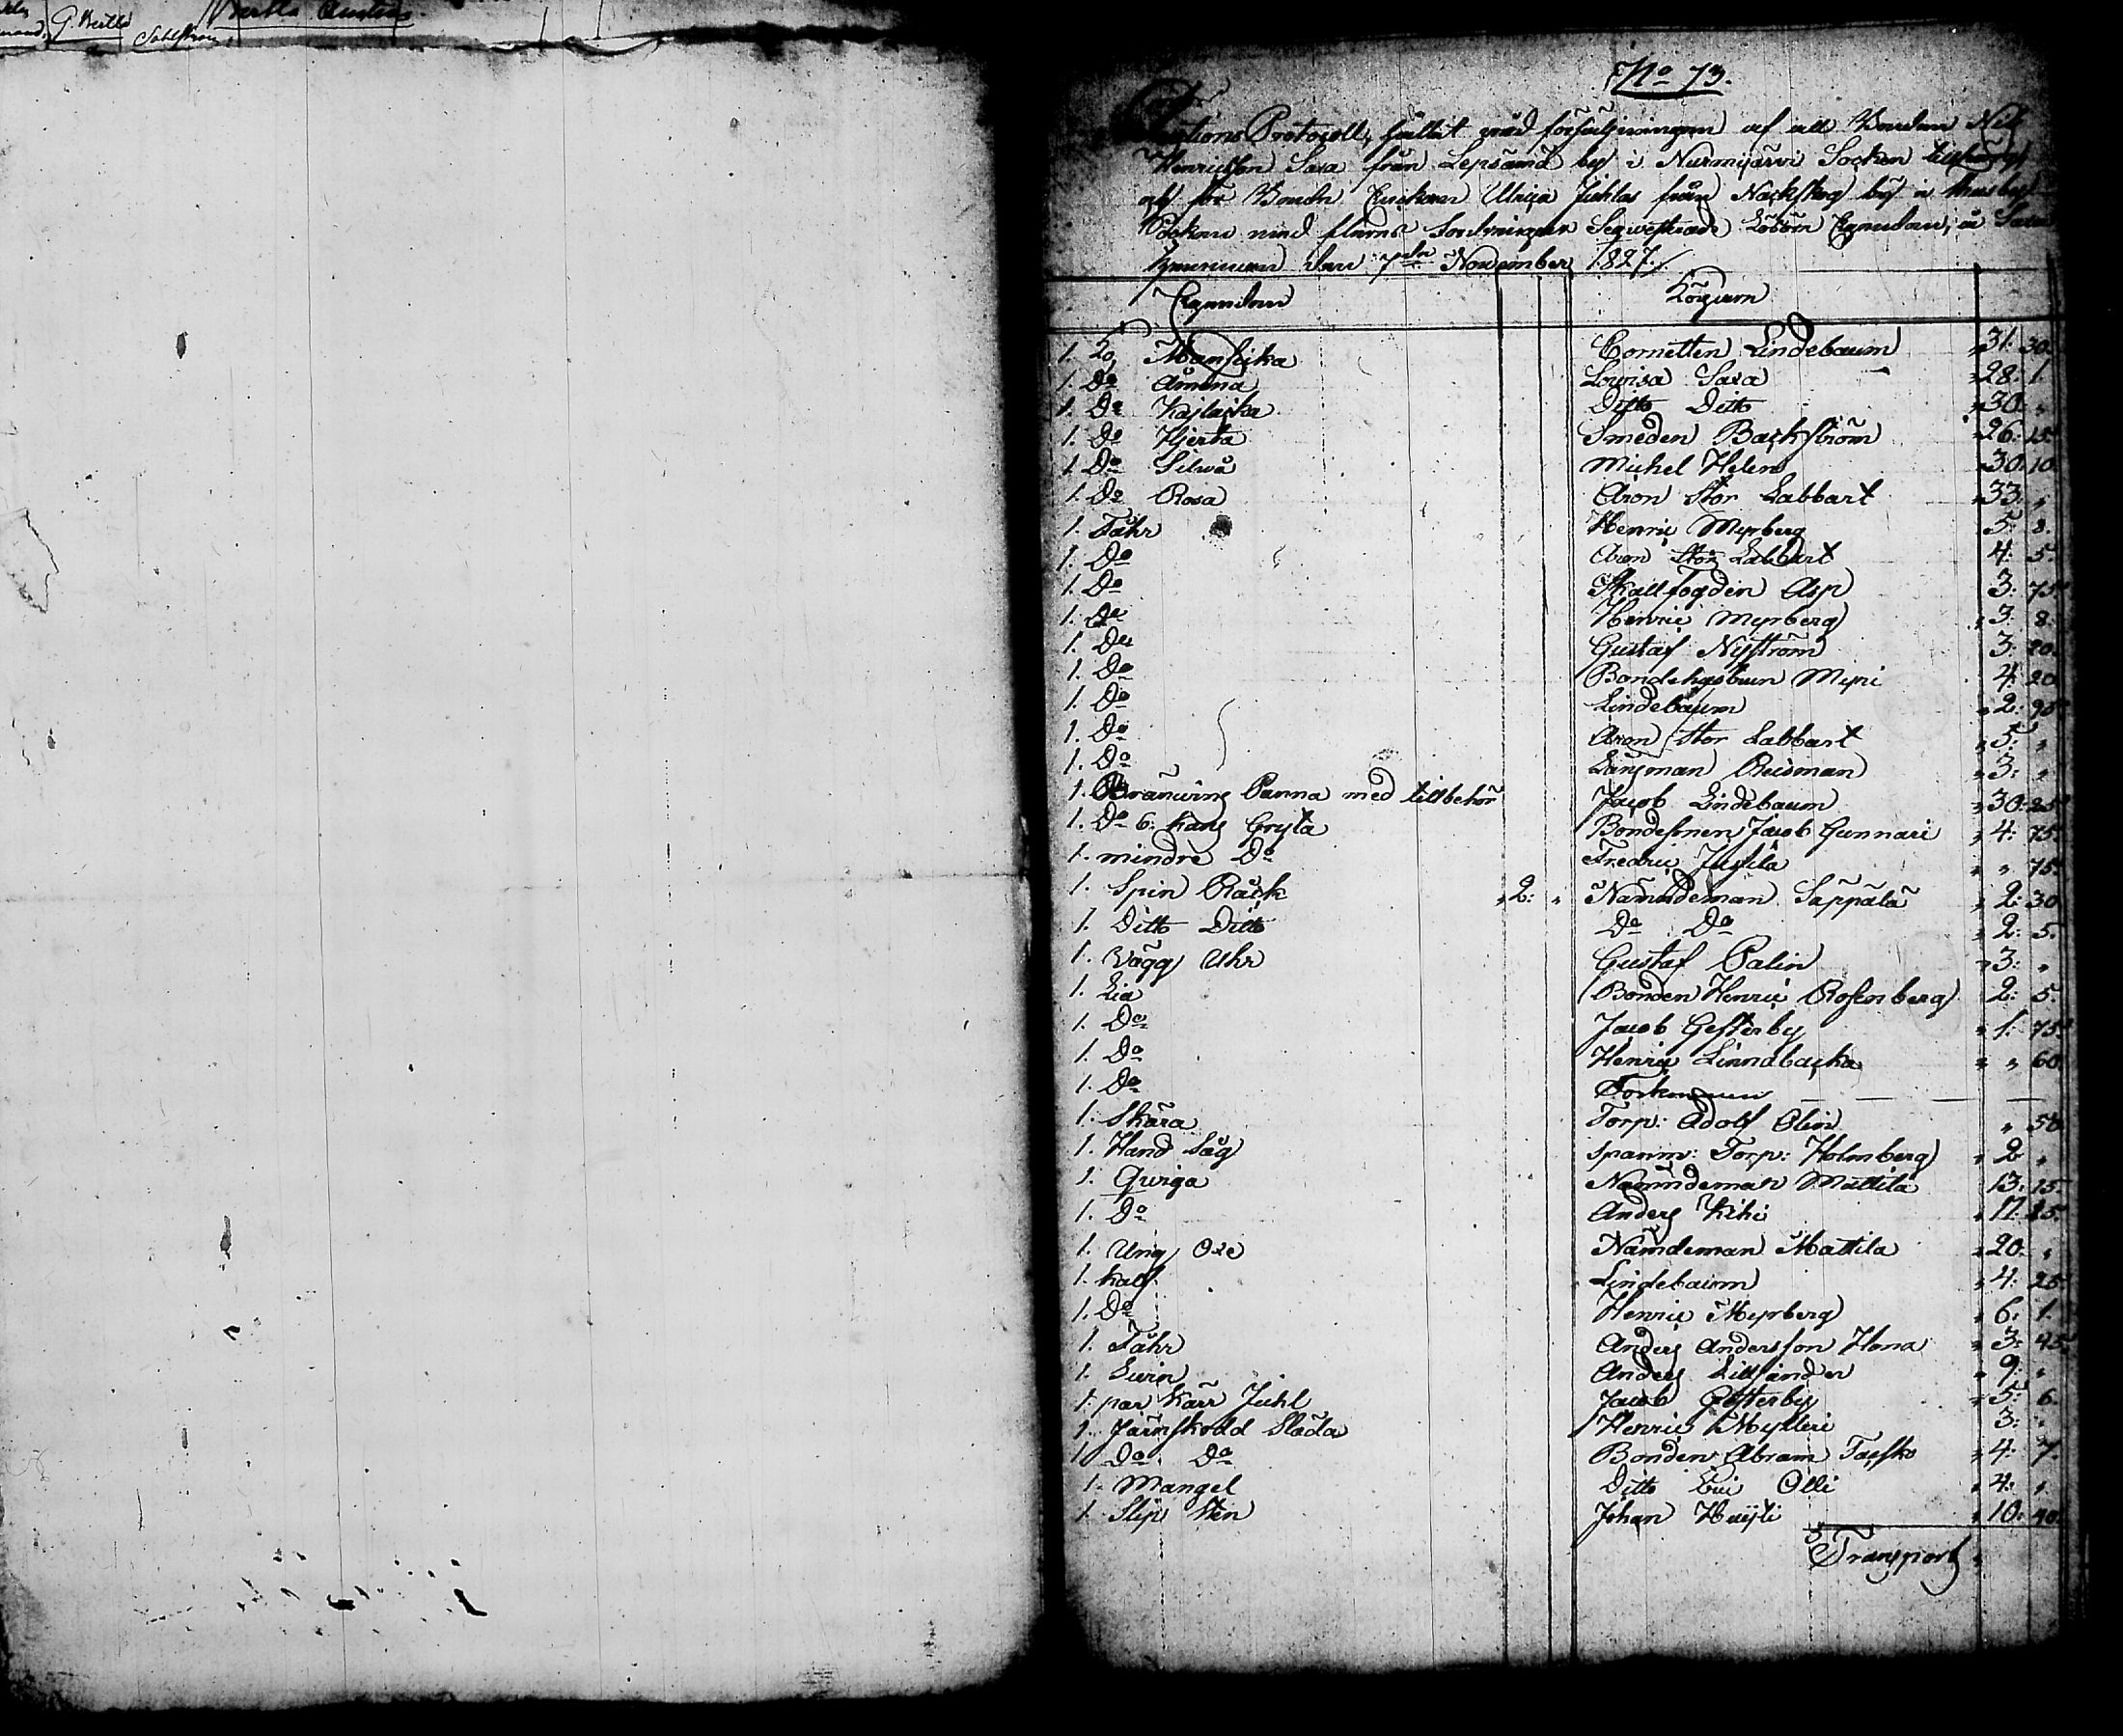 G. Bertls
Sahlstrøm
No 73.
Auctions Protocoll, hållit vid försäljningen af all Bonden Nils
Henricsson Saxa från Lepsämä by i Nurmijärvi Socken tillhörig
och för Bonde Enckan Ulrica Juhlas från Nackskog by i Thusby
Sockn med fleras fordringar Seqwestrade Lösörn Egendom, å Saxa
hemman den 7de November 1827./.
Egendom Köparen
1. Ko Mansicka Cornetten Lindebaum 31: 30.
1. Do Ämmnä Lovisa Saxa 28: 1
1. Do Kajlacka Ditto Ditto 30: "
1. Do Hjerta Smeden Backström 26: 15.
1. Do Silwa Michel Helen 30: 10
1. Do Rosa Aron Stor Labbart 33: "
1. Fåhr Henric Myrberg 5: 8.
1. Do Aron Stor Labbart 4: 5.
1. Do Skallfogden Asp 3: 75.
1. Do Henric Myrberg 3: 8
1. Do Gustaf Nyström 3: 20.
1. Do Bondehustrun Myri 4: 20
1. Do Lindebaum 2: 90.
1. Do Aron Stor Labbart 5: "
1. Do Länsman Reisman 3: "
1. Bränwins Panna med tillbehör Jacob Lindebaum 30: 25.
1. Do 6: kans Gryta Bondesonen Jacob Gunnari 4: 75.
1. mindre Do Fredric Jussila " 75.
1. Spin Råck 2: " Nämndeman Säppälä 2: 30
1. Ditto Ditto Do Do 2: 5.
1. Vägg Uhr Gustaf Palin 3: "
1. Lia Bonden Henric Rosenberg 2: 5.
1. Do Jacob Gesterby 1: 75.
1. Do Henric Linnabacka " 60
1. Do
1. Skära Torp: Adolf Olin " 50
1. Hand Såg Spanm: Torp: Holmberg 2 "
1. Qwiga Nämndeman Mattila 13: 15.
1. Do Anders Kihi 17: 25.
1. Ung Oxe Nämdeman Mattila 20: "
1. kalf Lindebaum 4: 25
1. Do Henric Myrberg 6: 1.
1. Fåhr Anders Andersson Hona 3: 45.
1. Swin Anders Lilljander 9: "
1. par Kärr Juhl Jacob Gesterby 5: 6.
1. Järnskodd Släda Henric Mylleri 3: "
1 Do Do Bonden Abram Taipko 4: 7.
1. Mangel Ditto Eric Olli 4: "
1. Slip Sten Johan Huijti 10: 40.
Transport